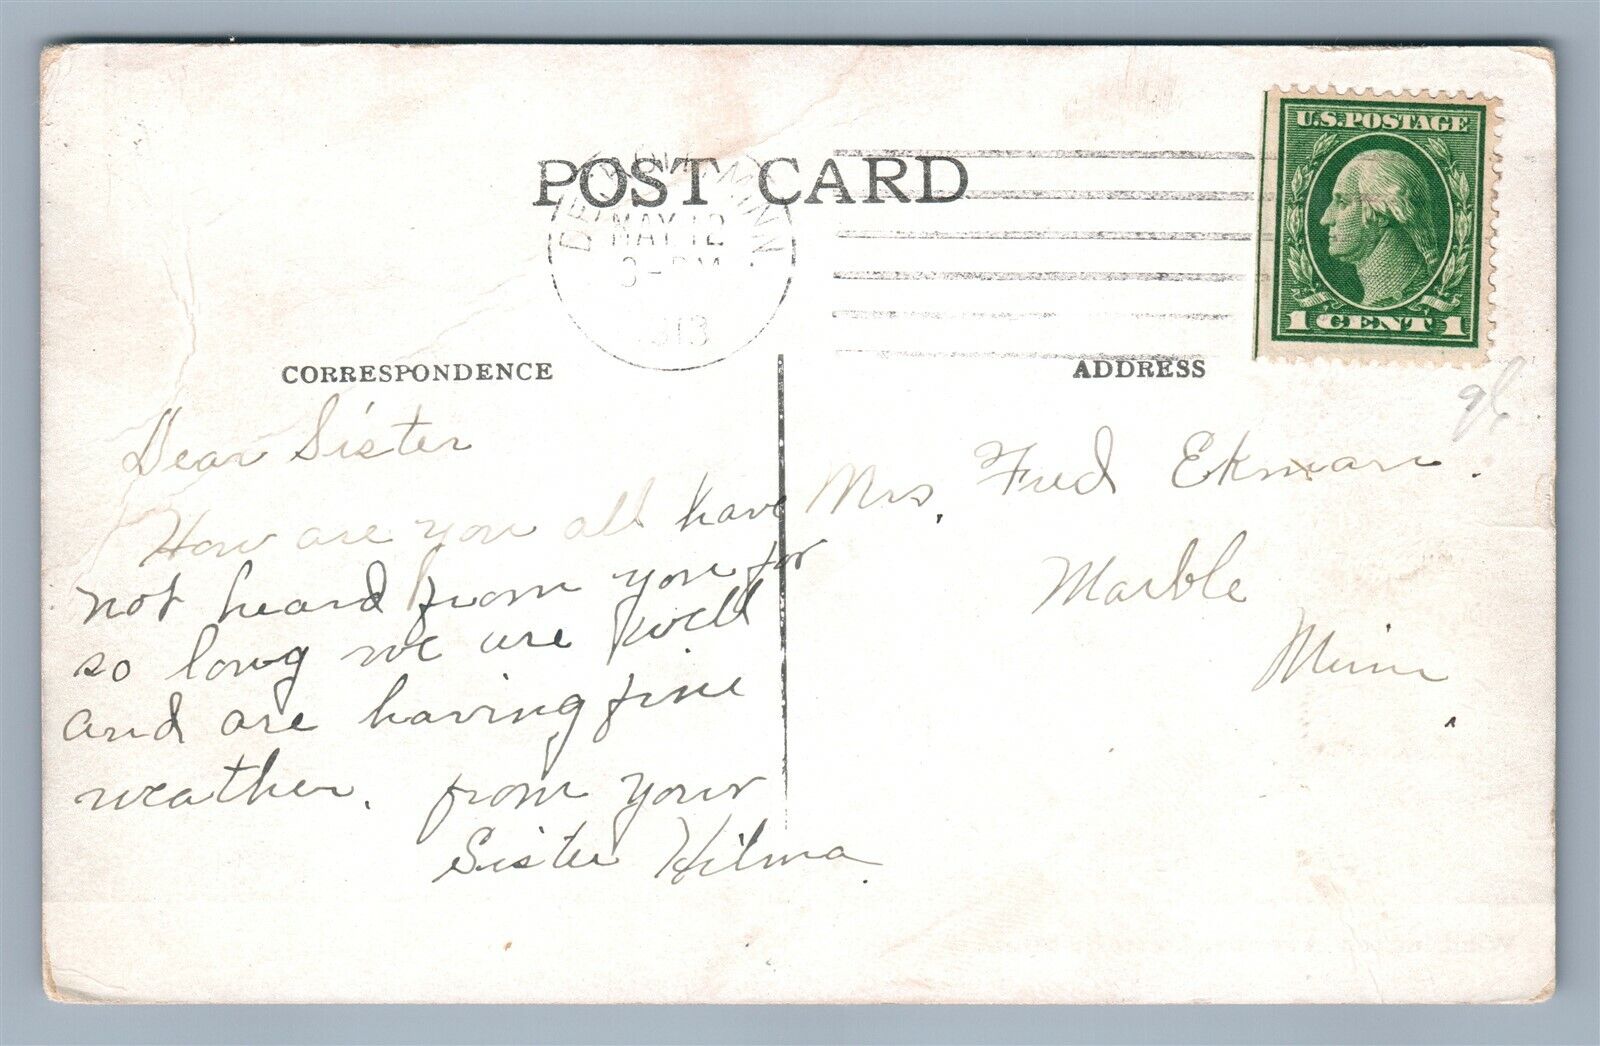 POST CARD
MINN.
MAY 12
PM
1913
U.S.POSTAGE
1 CENT 1
CORRESPONDENCE
ADDRESS
Dear Sister
How are you all have
not heard from you for
so long we are well
and are having fine
weather. from your
Sister Hilma.
Mrs. Fred Ekman.
Marble
Minn.